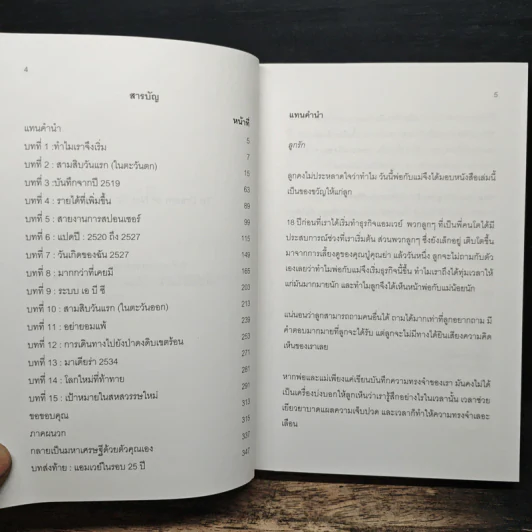 4
สารบัญ
หน้าที่
แทนคำนำ 5
บทที่ 1 :ทำไมเราจึงเริ่ม 7
บทที่ 2 : สามสิบวันแรก (ในตะวันตก) 15
บทที่ 3 :บันทึกจากปี 2519 63
บทที่ 4 : รายได้ที่เพิ่มขึ้น 89
บทที่ 5 : สายงานการสปอนเซอร์ 99
บทที่ 6 : แปดปี : 2520 ถึง 2527 115
บทที่ 7 : วันเกิดของฉัน 2527 149
บทที่ 8 : มากกว่าที่เคยมี 165
บทที่ 9 : ระบบ เอ บี ซี 203
บทที่ 10 : สามสิบวันแรก (ในตะวันออก) 213
บทที่ 11 : อย่ายอมแพ้ 239
บทที่ 12 : การเดินทางไปยังป่าดงดิบเขตร้อน 253
บทที่ 13 : มาเดียร่า 2534 271
บทที่ 14 : โลกใหม่ที่ท้าทาย 277
บทที่ 15 : เป้าหมายในสหสวรรษใหม่ 291
ขอขอบคุณ 313
ภาคผนวก 315
กลายเป็นมหาเศรษฐีด้วยตัวคุณเอง 337
บทส่งท้าย : แอมเวย์ในรอบ 25 ปี 347
5
แทนคำนำ
ลูกรัก
ลูกคงไม่ประหลาดใจว่าทำไม วันนี้พ่อกับแม่จึงได้มอบหนังสือเล่มนี้
เป็นของขวัญให้แก่ลูก
18 ปีก่อนที่เราได้เริ่มทำธุรกิจแอมเวย์ พวกลูกๆ ที่เป็นพี่คนโตได้มี
ประสบการณ์ช่วงที่เราเริ่มต้น ส่วนพวกลูกๆ ซึ่งยังเล็กอยู่ เติบโตขึ้น
มาจากการเลี้ยงดูของคุณปู่คุณย่า แล้ววันหนึ่ง ลูกจะไม่ถามกับตัว
เองเลยว่าทำไมพ่อกับแม่จึงเริ่มธุรกิจนี้ขึ้น ทำไมเราถึงได้ทุ่มเวลาให้
แก่มันมากมายนัก และทำไมลูกจึงได้เห็นหน้าพ่อแม่น้อยนัก
แน่นอนว่าลูกสามารถถามคนอื่นได้ ถามได้มากเท่าที่ลูกอยากถาม มี
คำตอบมากมายที่ลูกจะได้รับ แต่ลูกจะไม่มีทางได้ยินเสียงความคิด
เห็นของเราเลย
หากพ่อและแม่เพียงแค่เขียนบันทึกความทรงจำของเรา มันคงไม่ได้
เป็นเครื่องบ่งบอกให้ลูกเห็นว่าเรารู้สึกอย่างไรในเวลานั้น เวลาช่วย
เยียวยาบาดแผลความเจ็บปวด และเวลาก็ทำให้ความทรงจำเลอะ
เลือน